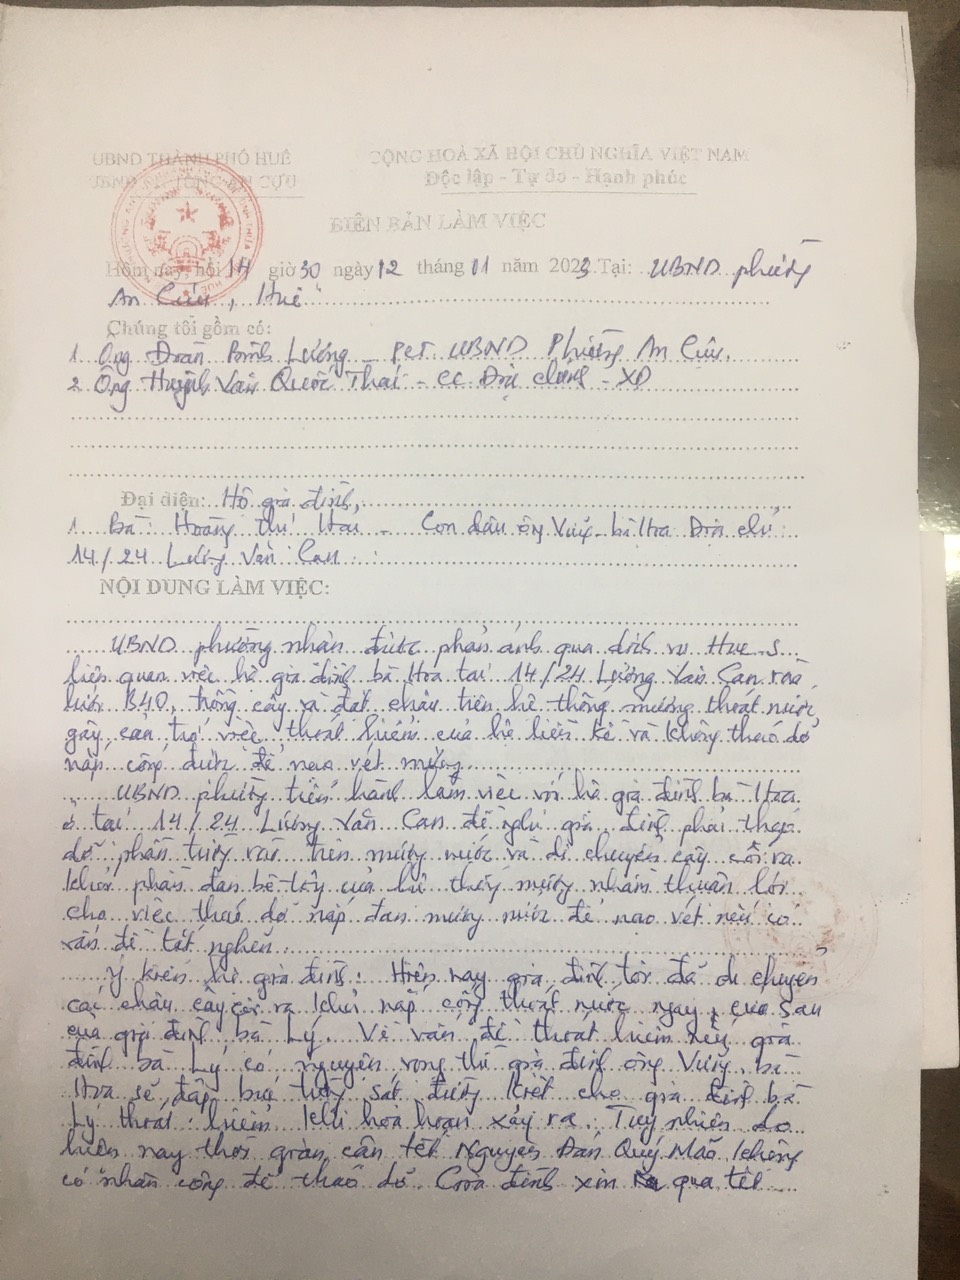 UBND THÀNH PHỐ HUẾ
CỘNG HOÀ XÃ HỘI CHỦ NGHĨA VIỆT NAM
UBND PHƯỜNG AN CỰU
Độc lập - Tự do - Hạnh phúc
BIÊN BẢN LÀM VIỆC
Hôm nay, hồi 14 giờ 30 ngày 12 tháng 01 năm 2023. Tại: UBND phường
An Cựu, Huế
Chúng tôi gồm có:
1. Ông Đoàn Lương - PCT UBND Phường An Cựu.
2. Ông Huỳnh Văn Quốc Thái - CC Địa chính - XD
Đại diện: Hộ gia đình,
1. Bà: Hoàng thị - Con dâu ông Vượng - bà Hoa Địa chỉ
14/24 Lương Văn Can
NỘI DUNG LÀM VIỆC:
UBND phường nhận được phản ánh qua dịch vụ Hue-S
liên quan việc hộ gia đình bà Hoa tại 14/24 Lương Văn Can rào
lưới B40, trồng cây và đặt chậu trên hệ thống mương thoát nước
gây cản trở việc thoát hiểm của hộ liền kề và không tháo dỡ
nắp cống được để nạo vét mương.
UBND phường tiến hành làm việc với hộ gia đình bà Hoa
ở tại 14/24 Lương Văn Can đề nghị gia đình phải tháo
dỡ phần tường rào trên mương nước và di chuyển cây cối ra
khỏi phần đan bê tông của hệ thống mương nhằm thuận lợi
cho việc tháo dỡ nắp đan mương nước để nạo vét nếu có
vấn đề tắt nghẽn.
Ý kiến hộ gia đình: Hiện nay gia đình tôi đã di chuyển
các chậu cây cối ra khỏi nắp cống thoát nước ngay cửa sau
của gia đình bà Lý. Về vấn đề thoát hiểm nếu gia
đình bà Lý có nguyện vọng thì gia đình ông Vượng, bà
Hoa sẽ đập bức tường sát đường kiệt cho gia đình bà
Lý thoát hiểm khi hoả hoạn xảy ra. Tuy nhiên do
hiện nay thời gian cận tết Nguyên Đán Quý Mão không
có nhân công để tháo dỡ. Gia đình xin qua tết